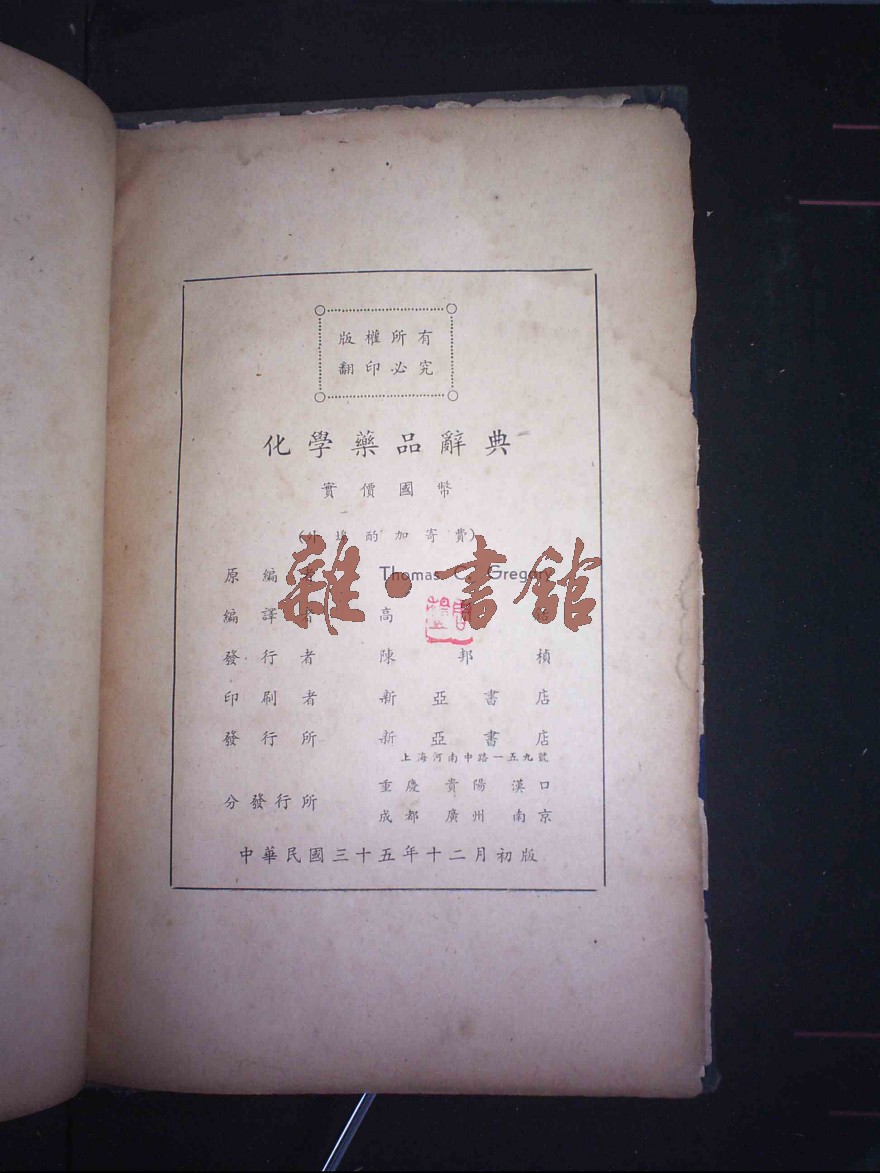 版權所有
翻印必究
化學藥品辭典
實價國幣
(外埠酌加寄費)
原編者 Thomas C. Gregory
編譯者 高
發行者 陳邦楨
印刷者 新亞書店
發行所 新亞書店
上海河南中路一五九號
分發行所 重慶 貴陽 漢口
成都 廣州 南京
中華民國三十五年十二月初版
雜·書館